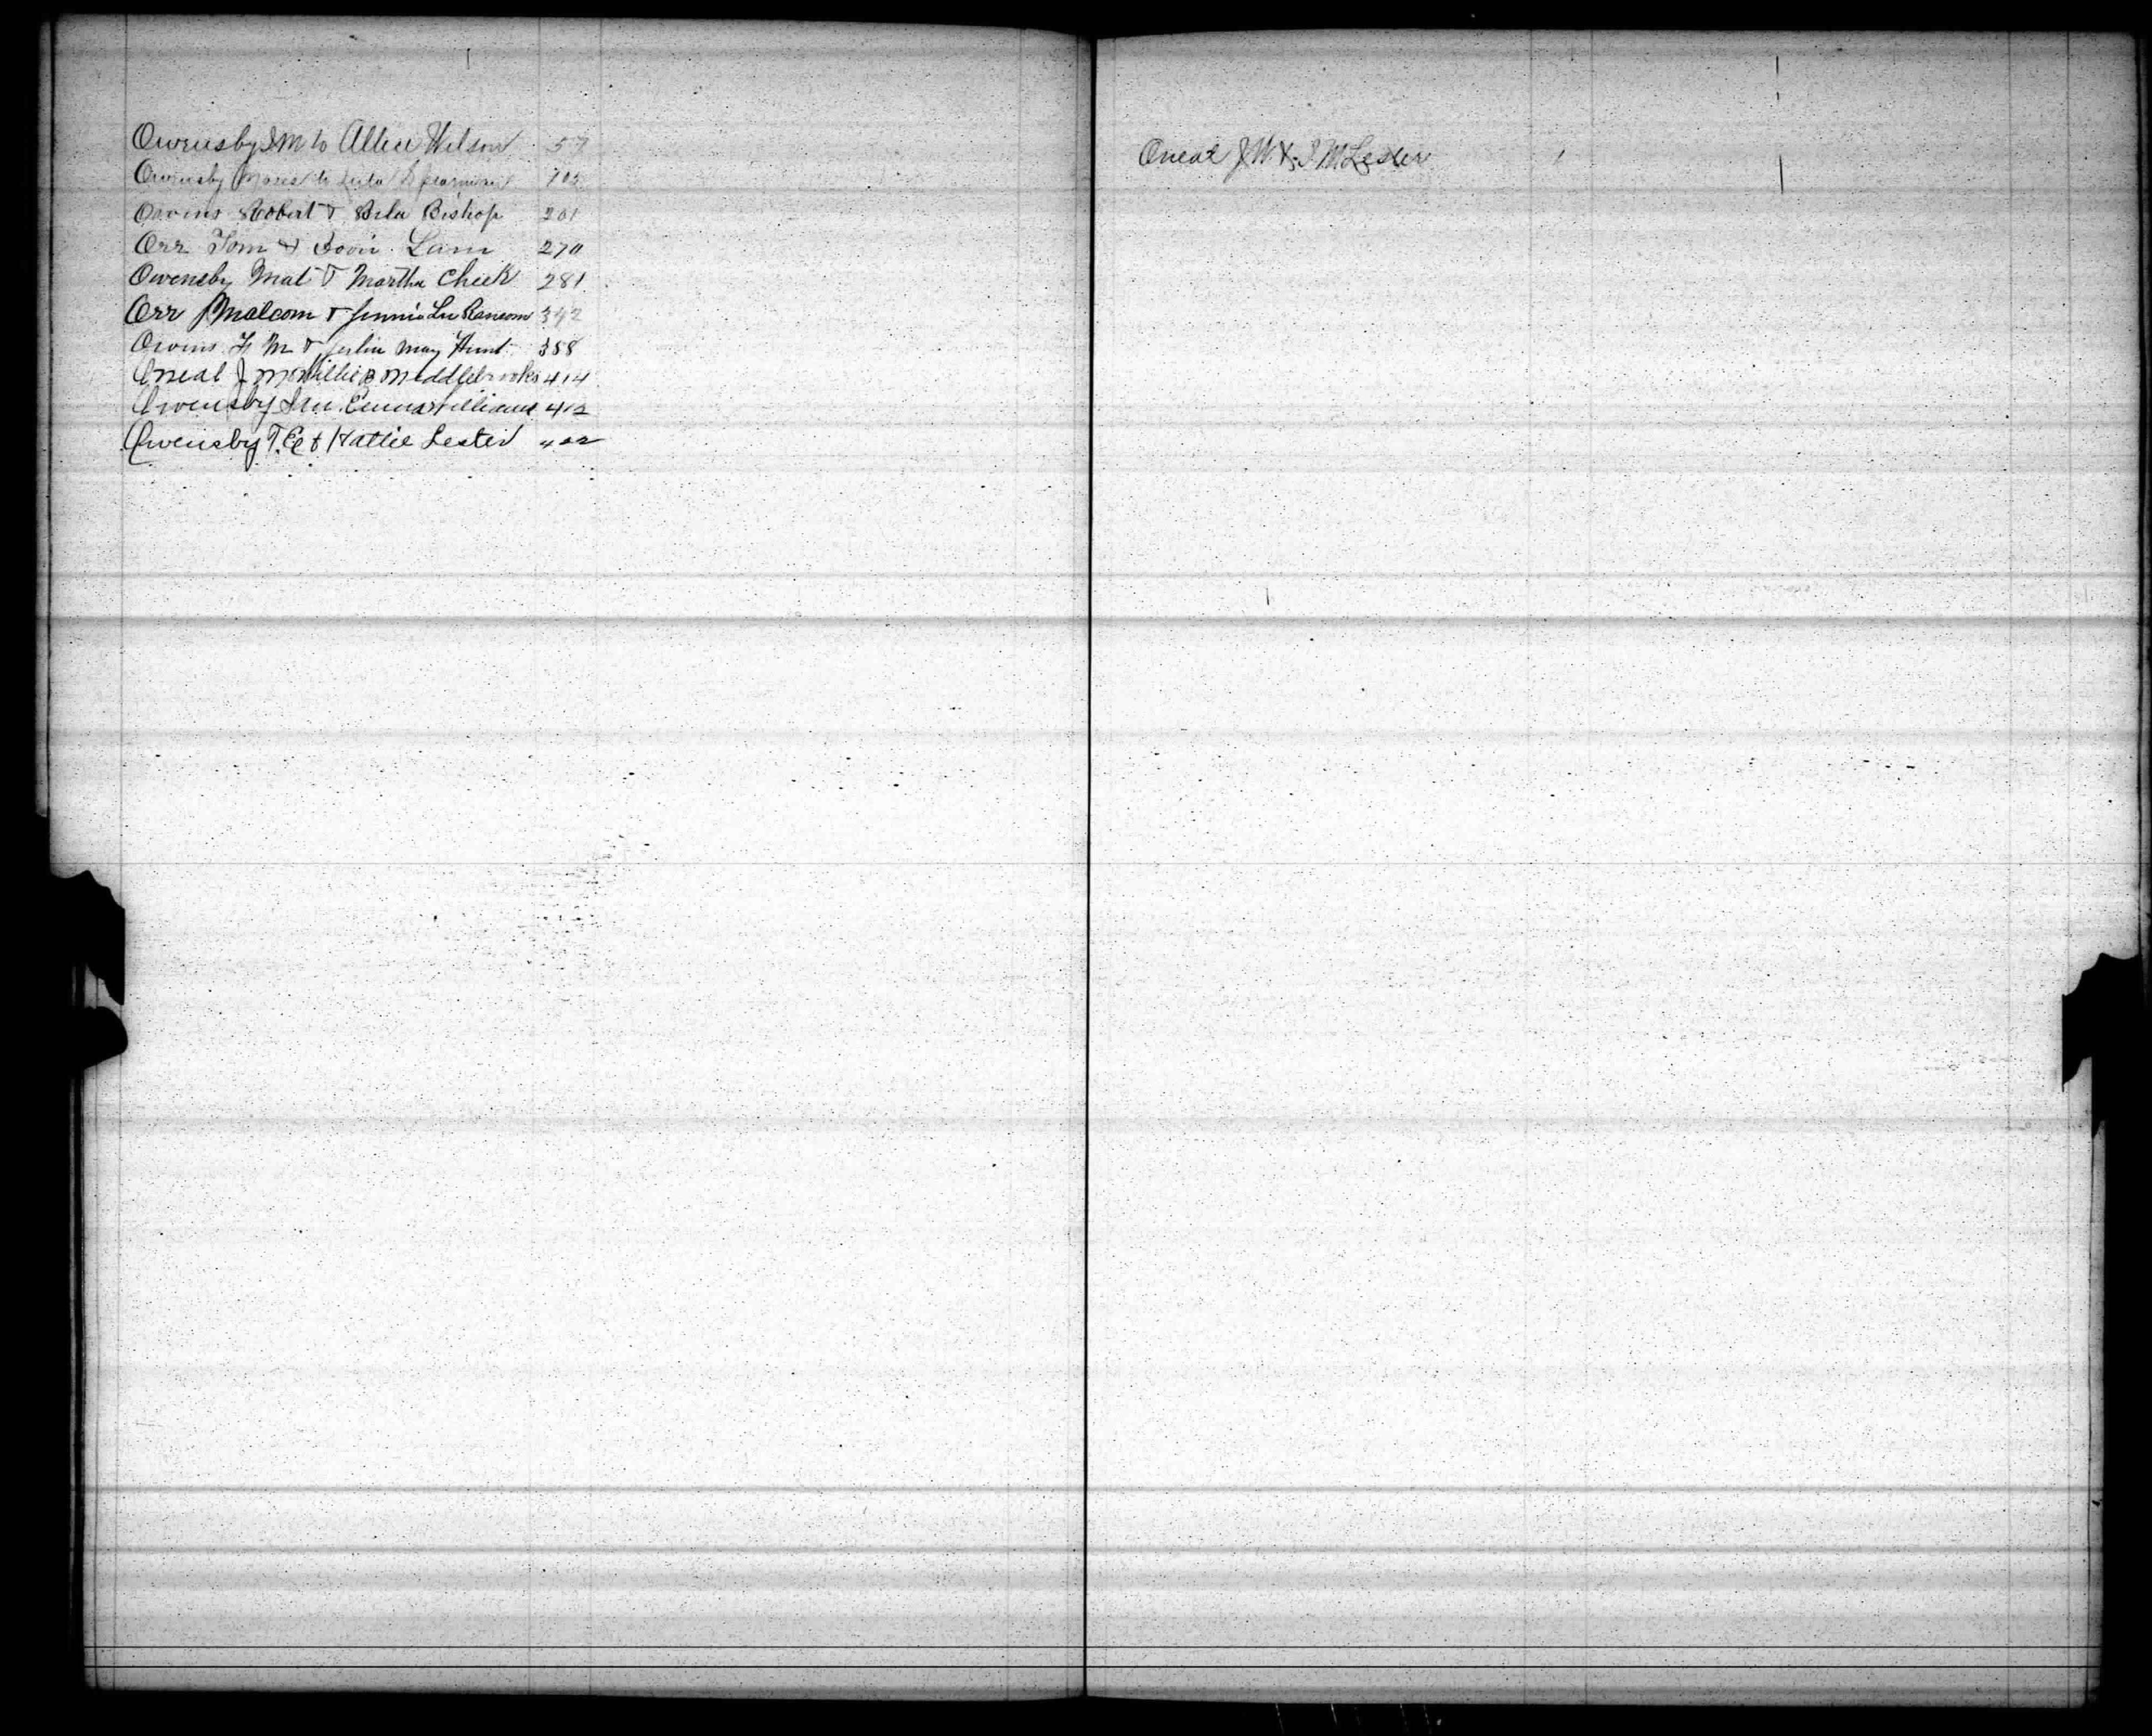 Owensby J M to Allice Wilson 57
Owensby Moses to Lula
Owens Robert & Bula Bishop 201
Orr Tom & Lam 270
Owensby Mat & Martha Cheek 281
Orr Malcom & Jennie Lu Ransom 342
Owens & May Hunt 358
Oneal J M & Willie B Middlebrooks 414
Owensby Emma Williams 412
Owensby T. E & Hattie Lester 422
Oneal J W & I M Lester 1